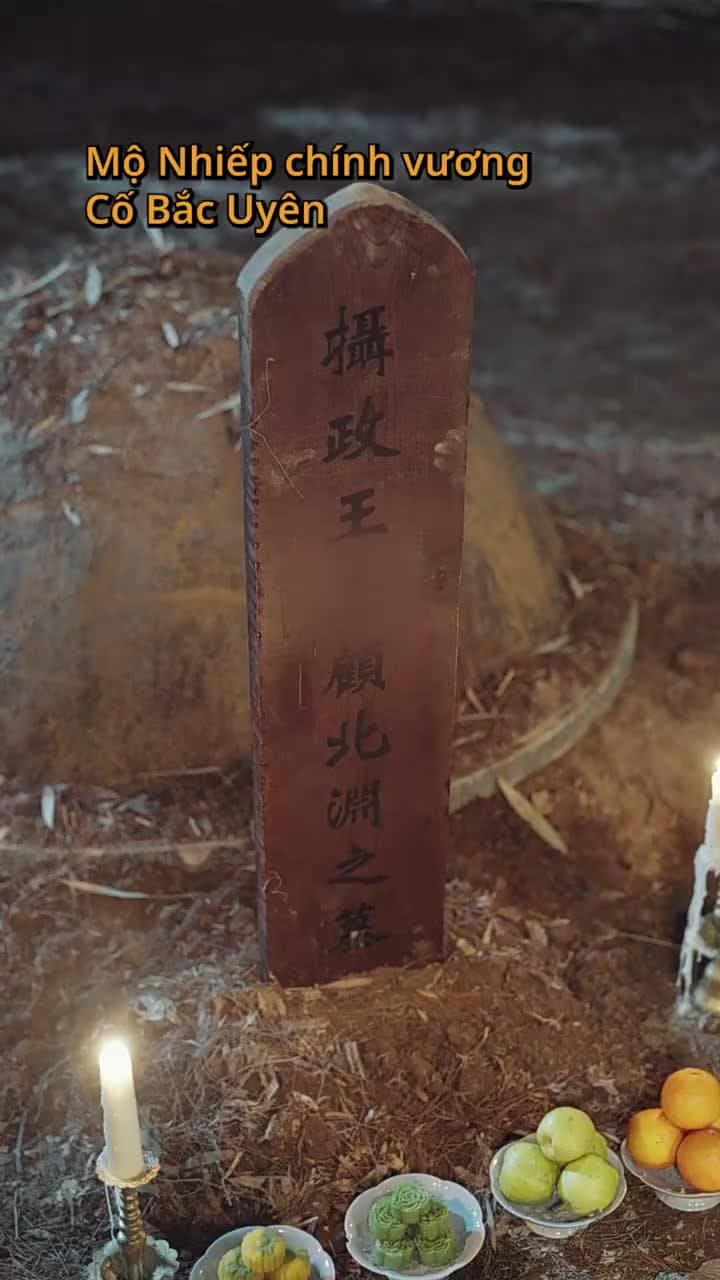 Mộ Nhiếp chính vương
Cố Bắc Uyên
攝政王 顧北淵之墓